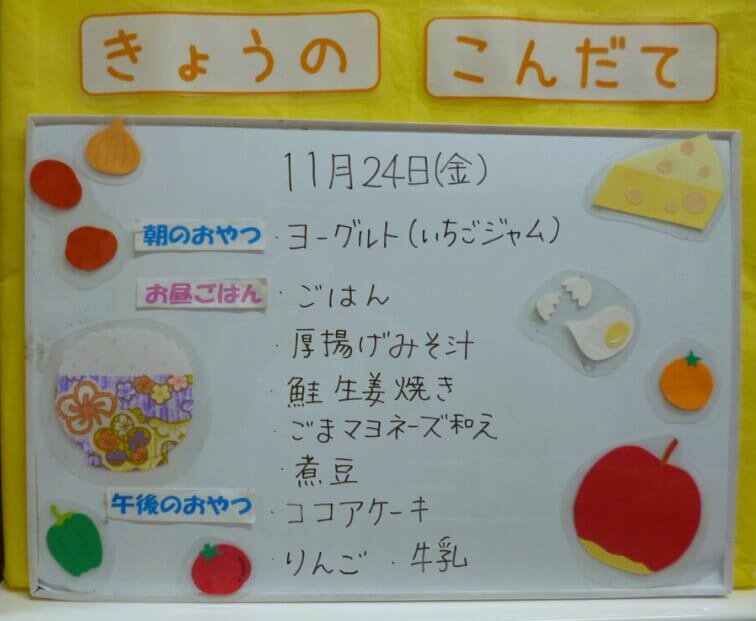 きょうの こんだて
11月24日(金)
朝のおやつ ・ヨーグルト(いちごジャム)
お昼ごはん ・ごはん
・厚揚げみそ汁
・鮭生姜焼き
・ごまマヨネーズ和え
・煮豆
午後のおやつ ・ココアケーキ
・りんご ・牛乳